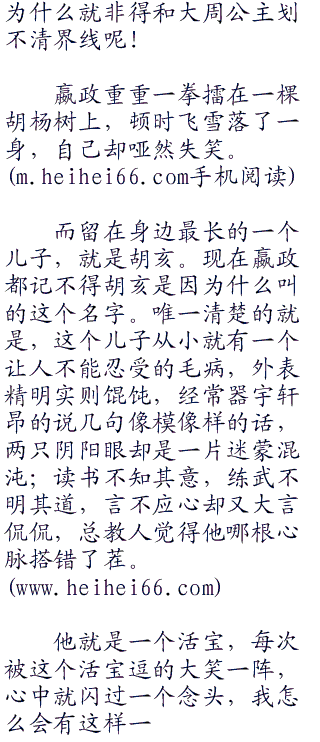 为什么就非得和大周公主划
不清界线呢！
嬴政重重一拳擂在一棵
胡杨树上，顿时飞雪落了一
身，自己却哑然失笑。
(m.heihei66.com手机阅读)
而留在身边最长的一个
儿子，就是胡亥。现在嬴政
都记不得胡亥是因为什么叫
的这个名字。唯一清楚的就
是，这个儿子从小就有一个
让人不能忍受的毛病，外表
精明实则馄饨，经常器宇轩
昂的说几句像模像样的话，
两只阴阳眼却是一片迷蒙混
沌；读书不知其意，练武不
明其道，言不应心却又大言
侃侃，总教人觉得他哪根心
脉搭错了茬。
(www.heihei66.com)
他就是一个活宝，每次
被这个活宝逗的大笑一阵，
心中就闪过一个念头，我怎
么会有这样一